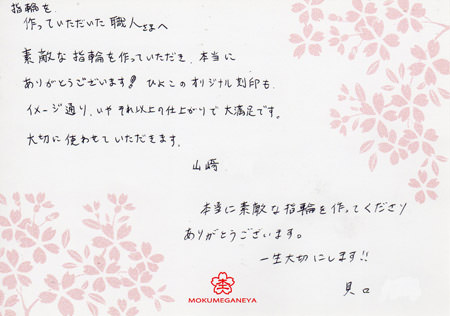 指輪を
作っていただいた職人さまへ
素敵な指輪を作っていただき、本当に
ありがとうございます!ひよこのオリジナル刻印も、
イメージ通り、いやそれ以上の仕上がりで大満足です。
大切に使わせていただきます。
山崎
本当に素敵な指輪を作ってくださり
ありがとうございます。
一生大切にします!!
貝口
MOKUMEGANEYA